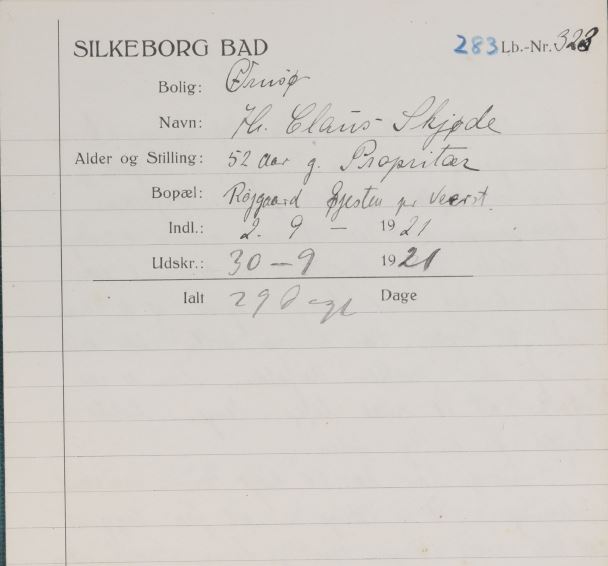 SILKEBORG BAD 283 Lb.-Nr. 323
Bolig: Ørnsø
Navn: Hr. Claus Skjøde
Alder og Stilling: 52 Aar g. Propritær
Bopæl: Røjgaard Gjesten pr Veerst.
Indl.: 2. 9 — 1921
Udskr.: 30 — 9 1921
Ialt 29 Dage Dage